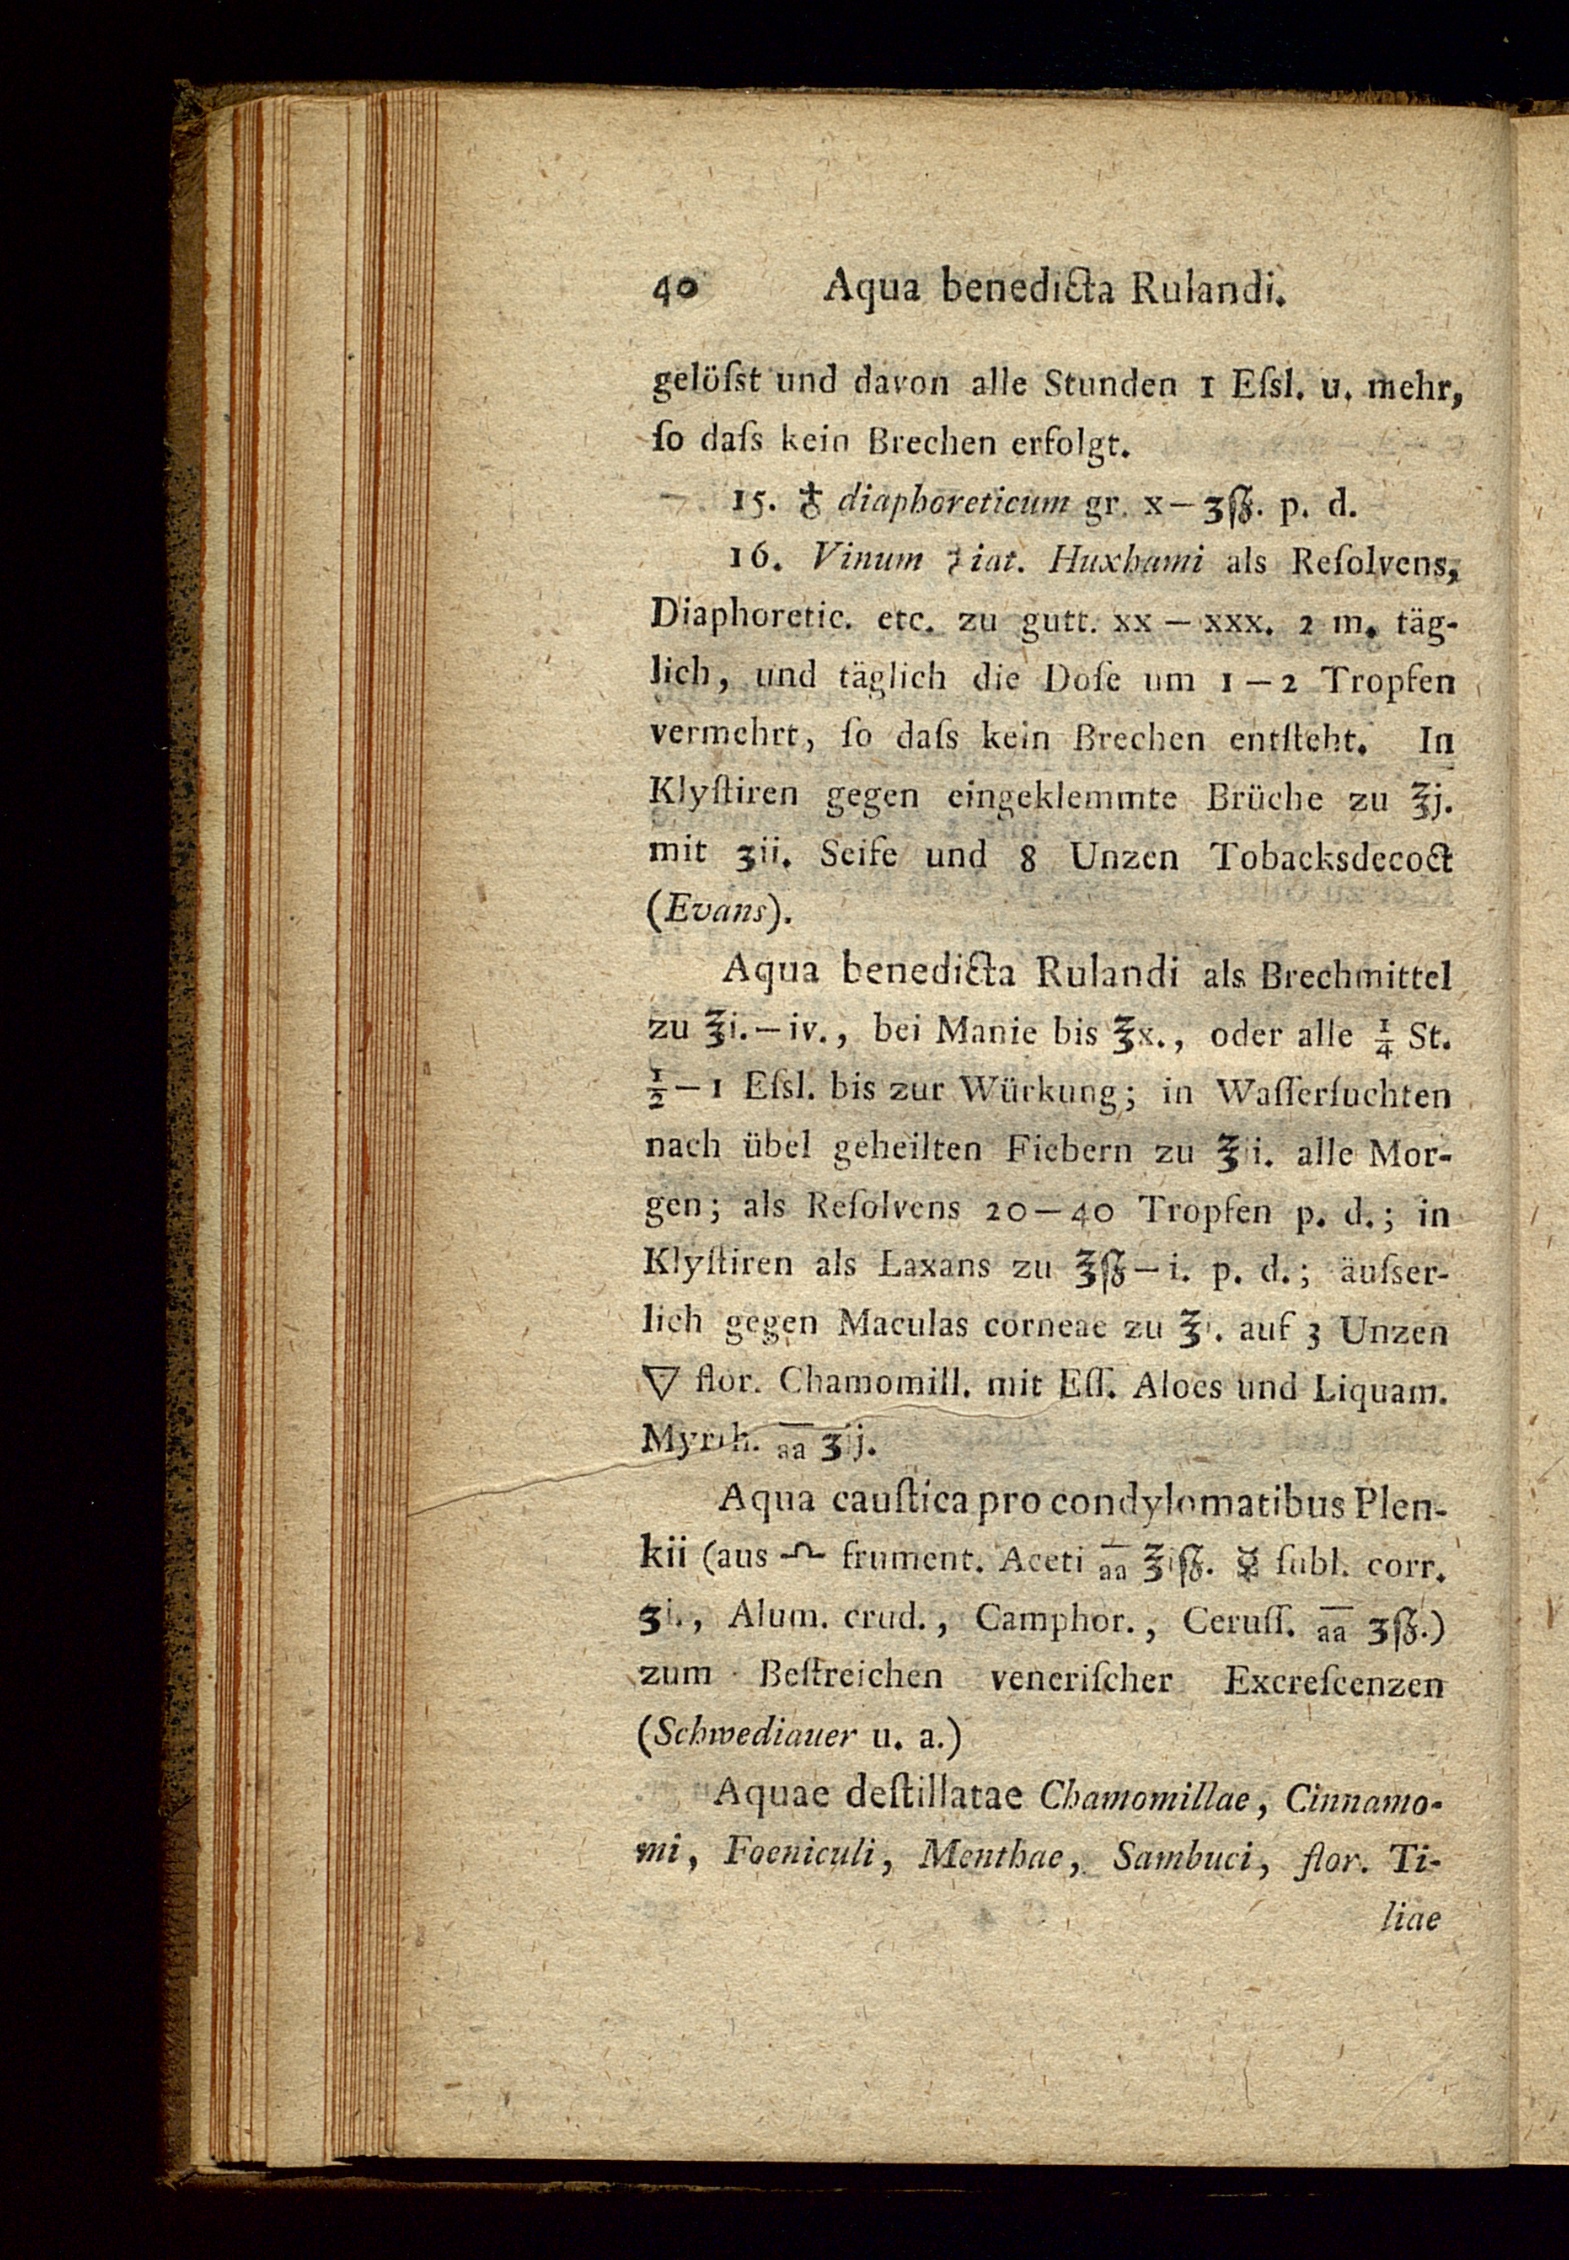 40 Aqua benedicta Rulandi.
gelöſst und davon alle Stunden 1 Eſsl. u. mehr,
ſo daſs kein Brechen erfolgt.
15. ♁ diaphoreticum gr. x — ʒſʒ. p. d.
16. Vinum iat. Huxhami als Reſolvens,
Diaphoretic. etc. zu gutt. xx — xxx. 2 m. täg-
lich, und täglich die Doſe um 1 — 2 Tropfen
vermehrt, ſo daſs kein Brechen entſteht. In
Klyſtiren gegen eingeklemmte Brüche zu ℥j.
mit ʒii. Seife und 8 Unzen Tobacksdecoct
(Evans).
Aqua benedicta Rulandi als Brechmittel
zu ℥i. — iv., bei Manie bis ℥x., oder alle ¼ St.
½ — 1 Eſsl. bis zur Würkung; in Waſſerſuchten
nach übel geheilten Fiebern zu ℥i. alle Mor-
gen; als Reſolvens 20 — 40 Tropfen p. d.; in
Klyſtiren als Laxans zu ℥ſʒ — i. p. d.; äuſser-
lich gegen Maculas corneae zu ℥i. auf 3 Unzen
🜄 flor. Chamomill. mit Eſſ. Aloes und Liquam.
Myrrh. a̅a̅ ʒij.
Aqua cauſtica pro condylomatibus Plen-
kii (aus frument. Aceti a̅a̅ ℥iſʒ. ☿ ſubl. corr.
ʒi., Alum. crud., Camphor., Ceruſſ. a̅a̅ ʒſʒ.)
zum Beſtreichen veneriſcher Excreſcenzen
(Schwediauer u. a.)
Aquae deſtillatae Chamomillae, Cinnamo-
mi, Foeniculi, Menthae, Sambuci, flor. Ti-
liae